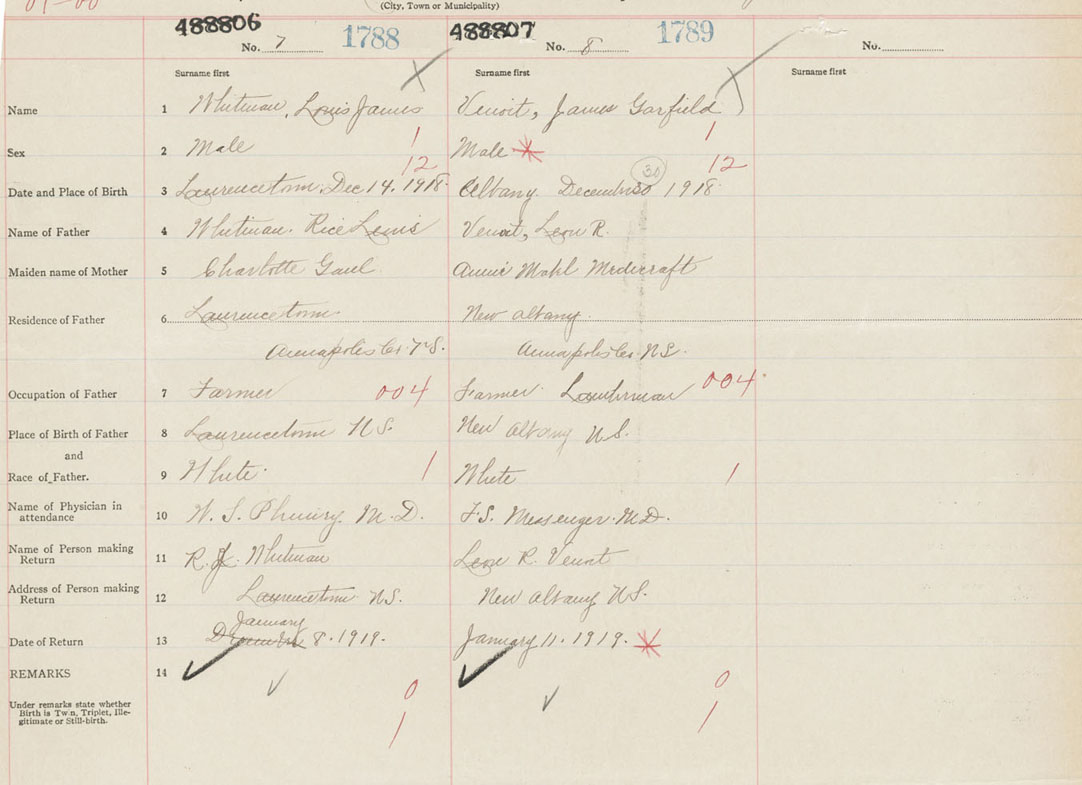 01-00
(City, Town or Municipality)
488806 488807
No. 7 1788 No. 8 1789 No.
Surname first Surname first Surname first
Name 1 Whitman, Louis James Venoit, James Garfield
1 1
Sex 2 Male Male
12 30 12
Date and Place of Birth 3 Laurencetown. Dec 14. 1918. Albany. December 30 1918.
Name of Father 4 Whitman. Rice Lewis Venoit, Leon R.
Maiden name of Mother 5 Charlotte Gaul Annie Mabl Medicraft
Residence of Father 6 Laurencetown New Albany.
Annapolis Co. N.S. Annapolis Co. N.S.
Occupation of Father 7 Farmer 004 Farmer Lumberman 004
Place of Birth of Father 8 Laurencetown N.S. New Albany N.S.
and
Race of Father. 9 White. 1 White 1
Name of Physician in
attendance 10 M.D. F.S. Messenger. M.D.
Name of Person making
Return 11 R. J. Whitman Leon R. Venoit
Address of Person making
Return 12 Laurencetown N.S. New Albany N.S.
January
Date of Return 13 December 8. 1919. January 11. 1919.
REMARKS 14
0 0
Under remarks state whether
Birth is Twin, Triplet, Ille-
gitimate or Still-birth.
1 1